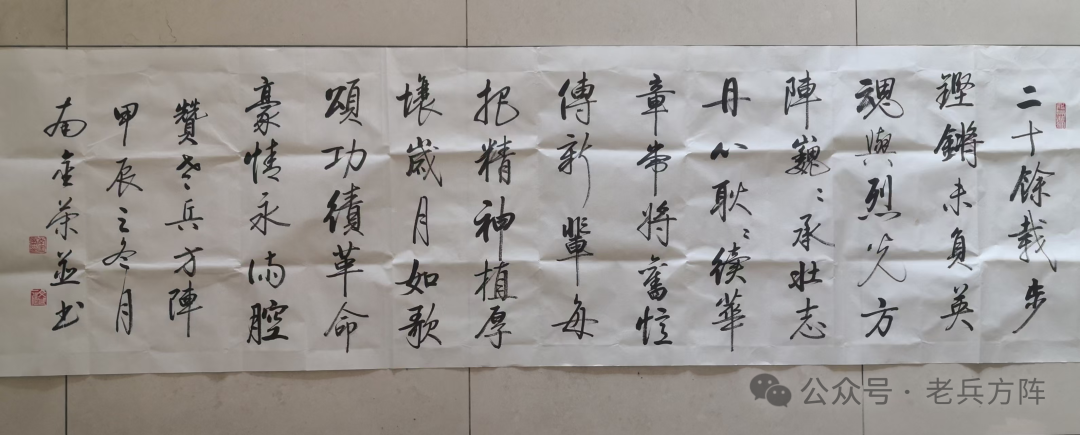 二十餘載步
鏗鏘未負英
魂與烈光方
陣巍〻承壯志
丹心耿〻續華
章常將舊憶
傳新輩每
把精神植厚
壤歲月如歌
頌功績革命
豪情永滿腔
贊老兵方陣
甲辰之冬月
榮並书
公众号·老兵方阵